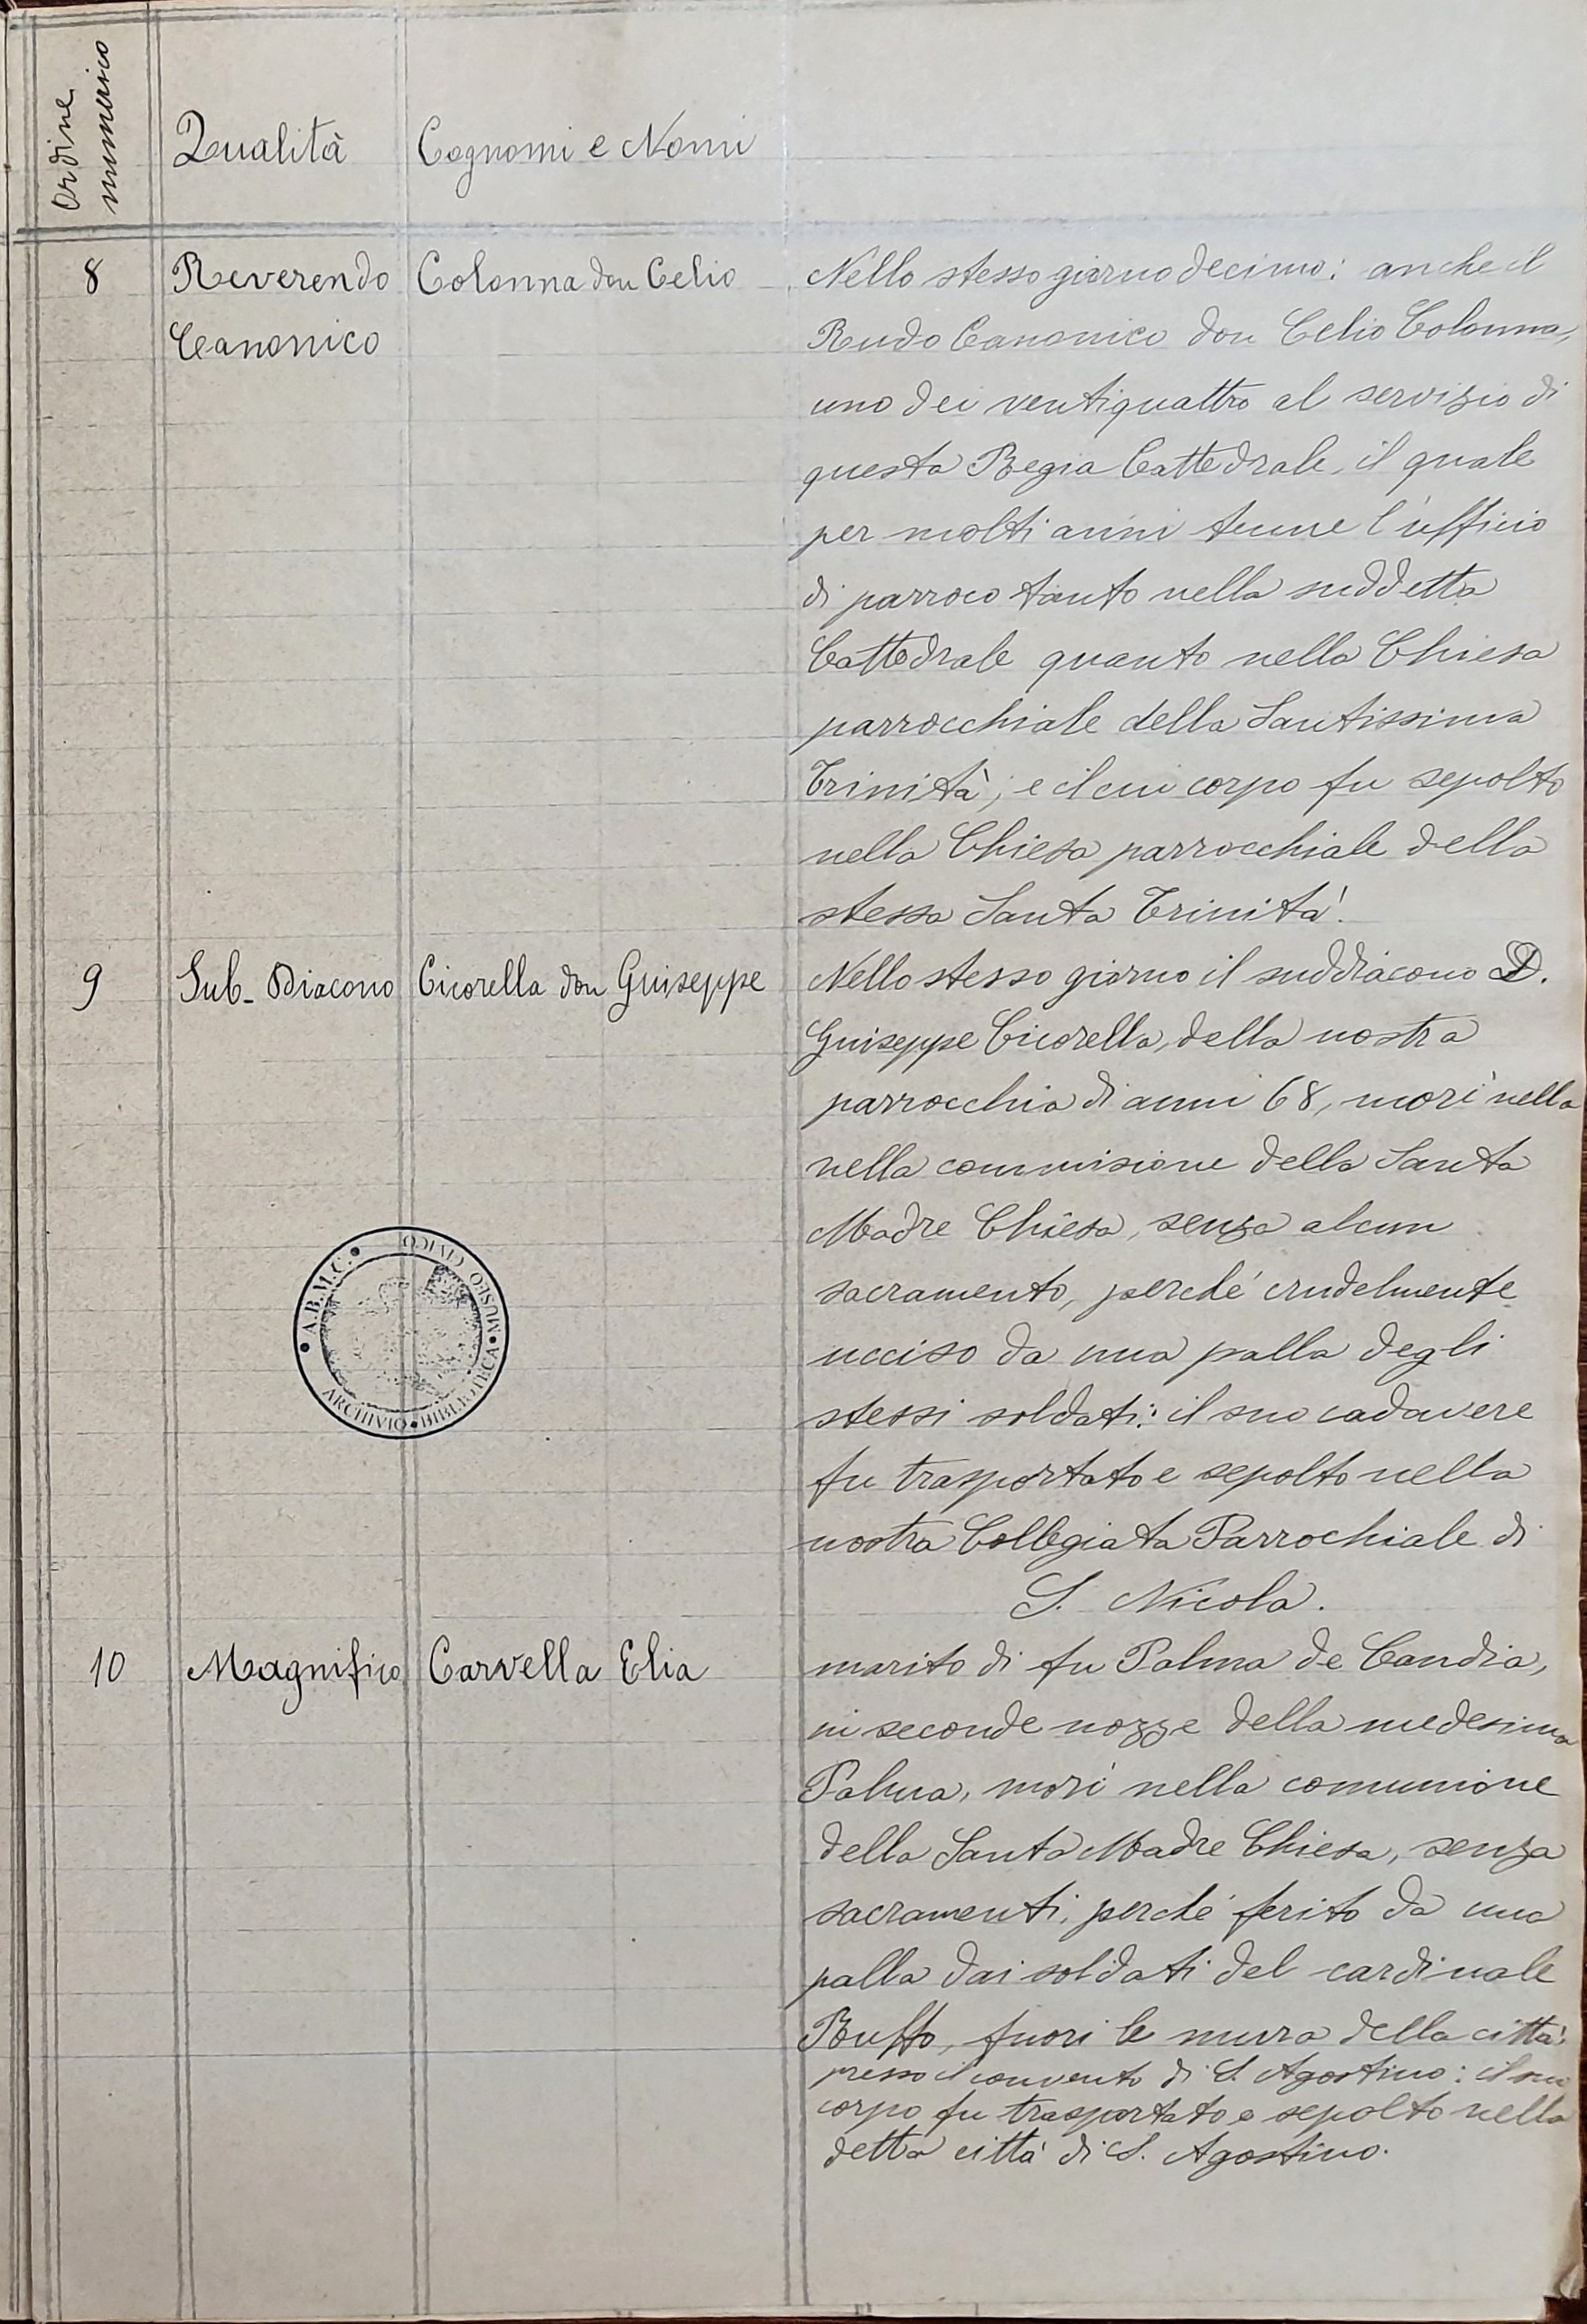 Ordine numerico
Qualità
Cognomi e Nomi
8
Reverendo
Canonico
Colonna don Celio
Nello stesso giorno decimo: anche il
Rndo Canonico don Celio Colonna,
uno dei ventiquattro al servizio di
questa Regia Cattedrale, il quale
per molti anni tenne l'ufficio
di parroco tanto nella suddetta
Cattedrale quanto nella Chiesa
parrocchiale della Santissima
Trinità; e il cui corpo fu sepolto
nella Chiesa parrocchiale della
stessa Santa Trinità.
9
Sub-Diacono
Cicorella don Giuseppe
Nello stesso giorno il suddiacono D.
Giuseppe Cicorella, della nostra
parrocchia di anni 68, morì nella
nella commisione della Santa
Madre Chiesa, senza alcun
sacramento, perché crudelmente
ucciso da una palla degli
stessi soldati: il suo cadavere
fu trasportato e sepolto nella
nostra Collegiata Parrochiale di
S. Nicola.
A.B.M.C.
ARCHIVIO • BIBLIOTECA • MUSEO CIVICO
10
Magnifico
Carvella Elia
marito di fu Palma de Candia,
in seconde nozze della medesima
Palma, morì nella comunione
della Santa Madre Chiesa, senza
sacramenti, perché ferito da una
palla dai soldati del cardinale
Ruffo, fuori le mura della città,
presso il convento di S. Agostino: il suo
corpo fu trasportato e sepolto nella
detta città di S. Agostino.